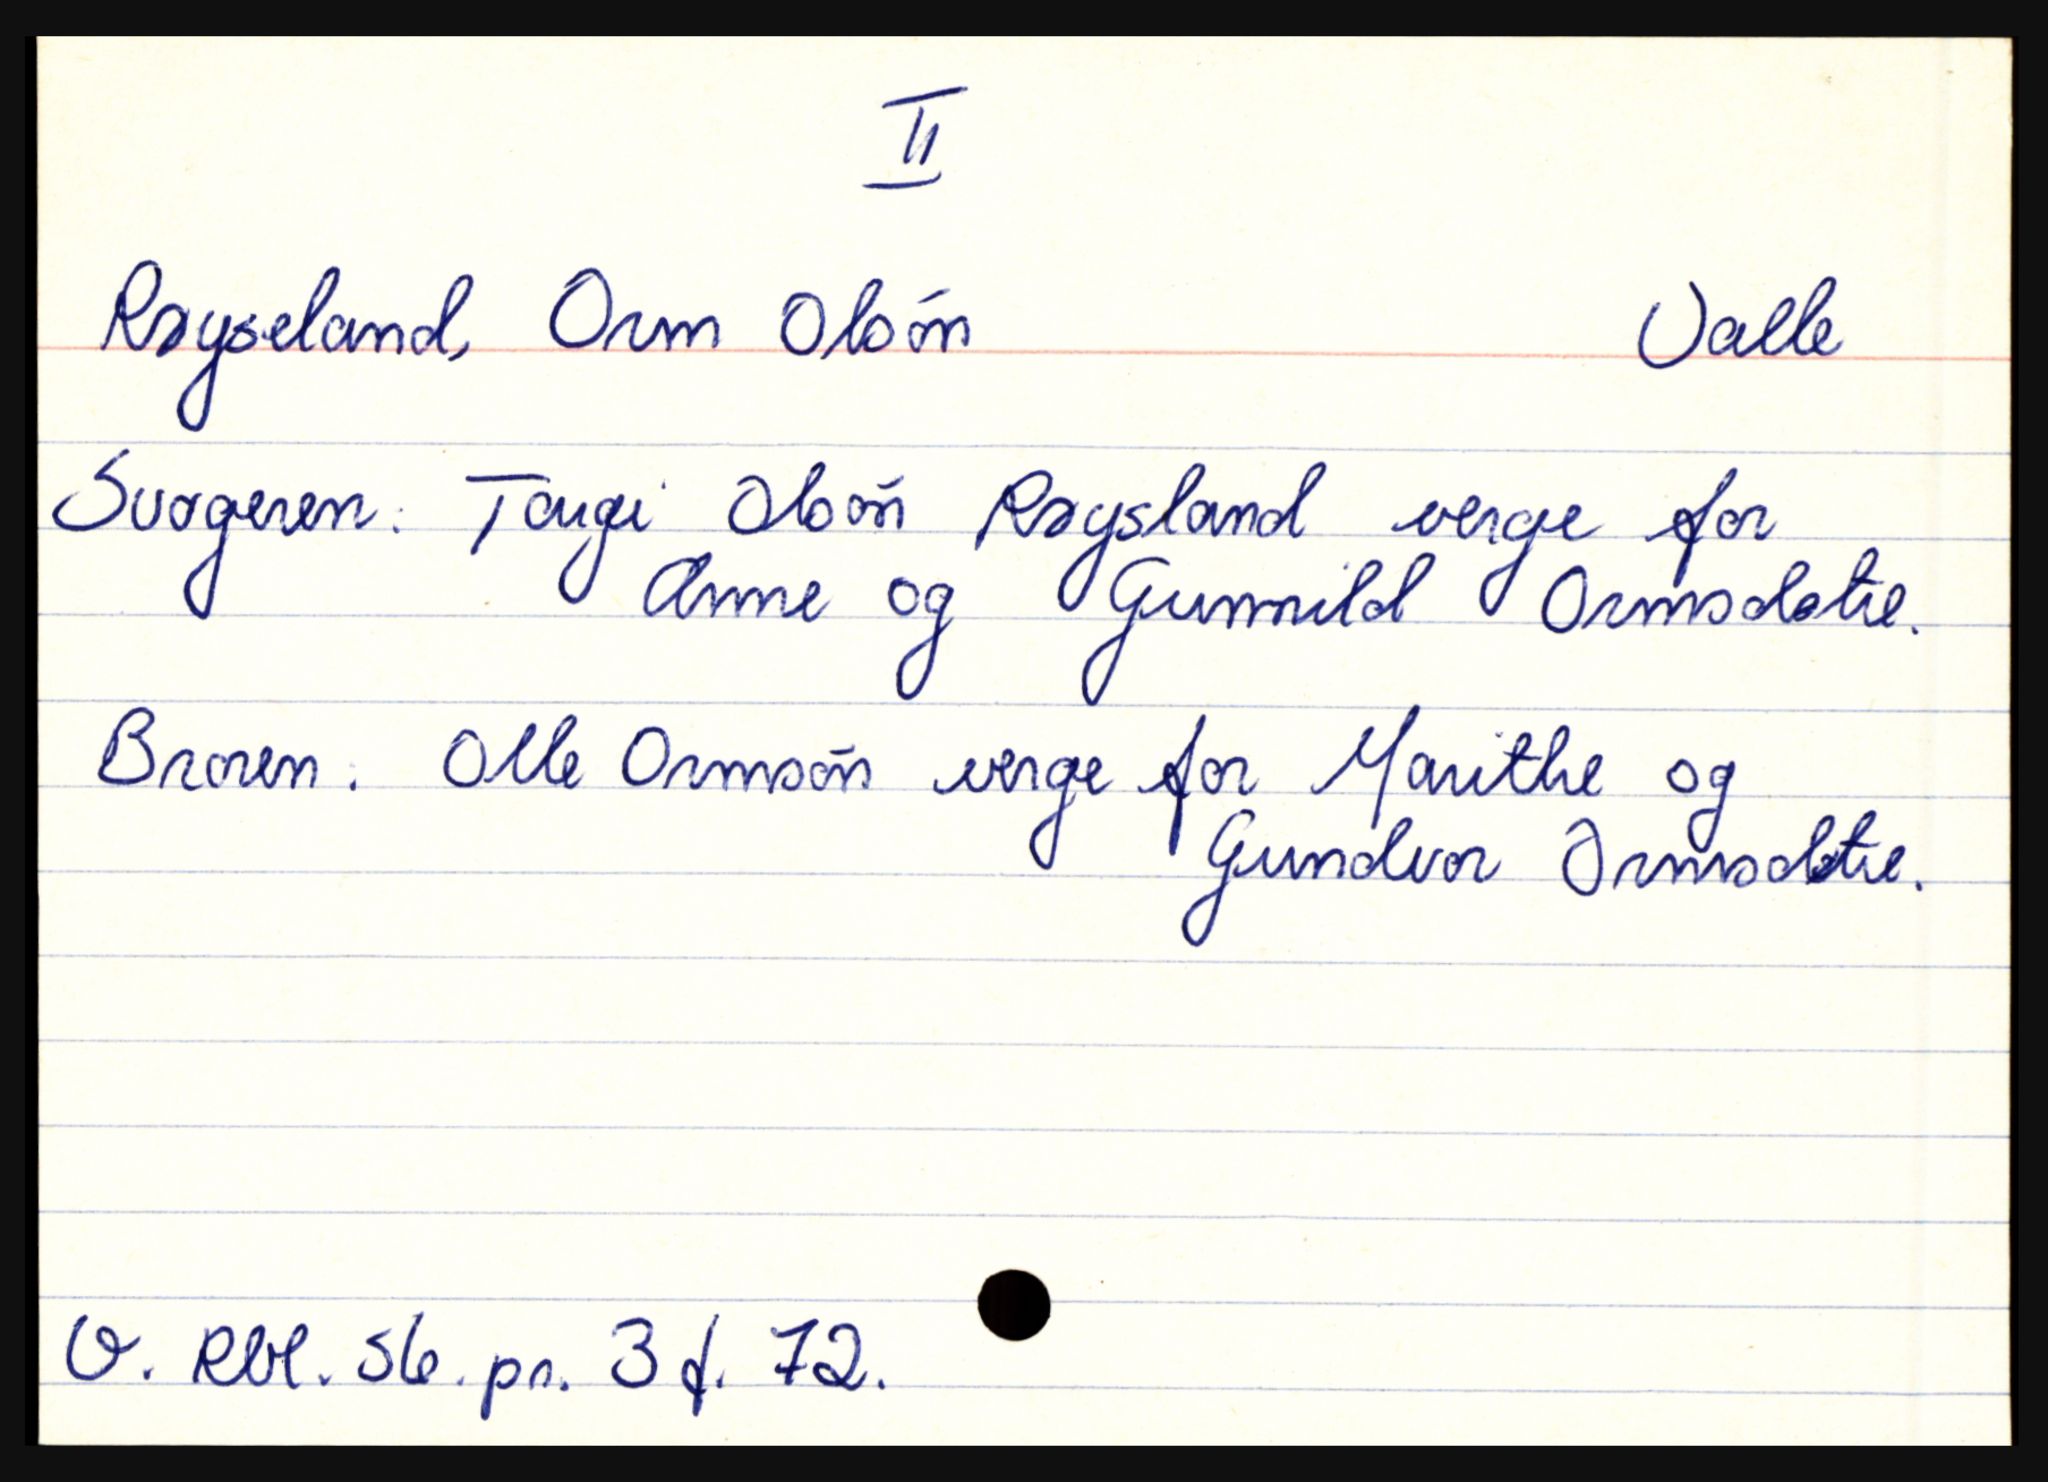 II
Røyseland, Orm Olsøn Valle
Svogeren: Targi Olsøn Røysland verge for
Anne og Gunnild Ormsdatre.
Broren: Olle Ormsøn verge for Marithe og
Gundvor Ormsdatre.
O. Rbl. Sk. pr. 3 f. 72.